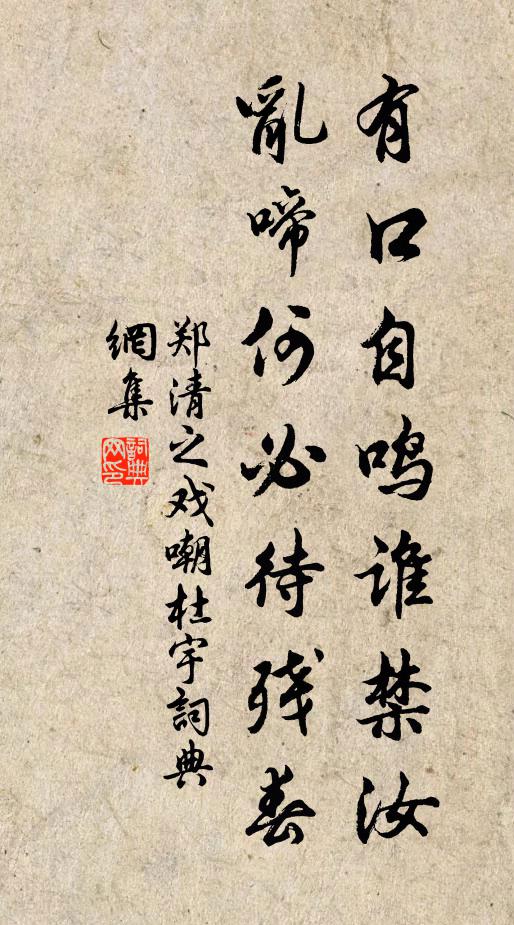 有口自鸣谁禁汝
亂啼何必待残春
郑清之戏嘲杜宇詞典
網集
詞典
网印